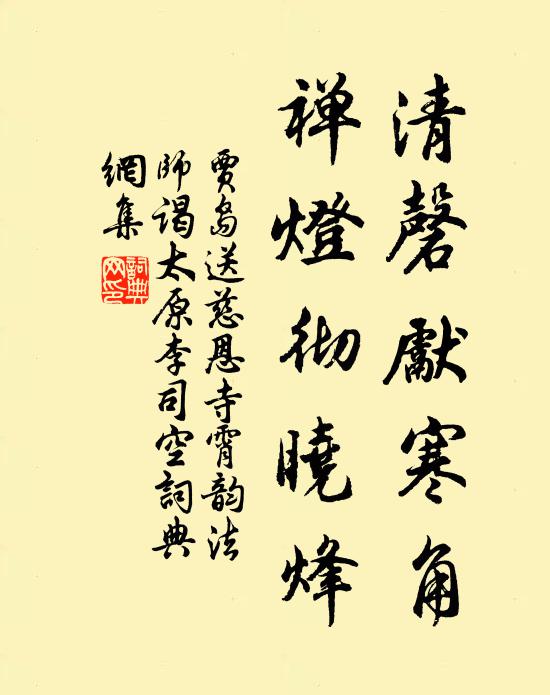 清磬獻寒角
禅燈彻曉烽
賈島送慈恩寺霄韵法
師謁太原李司空詞典
網集
詞典
网印